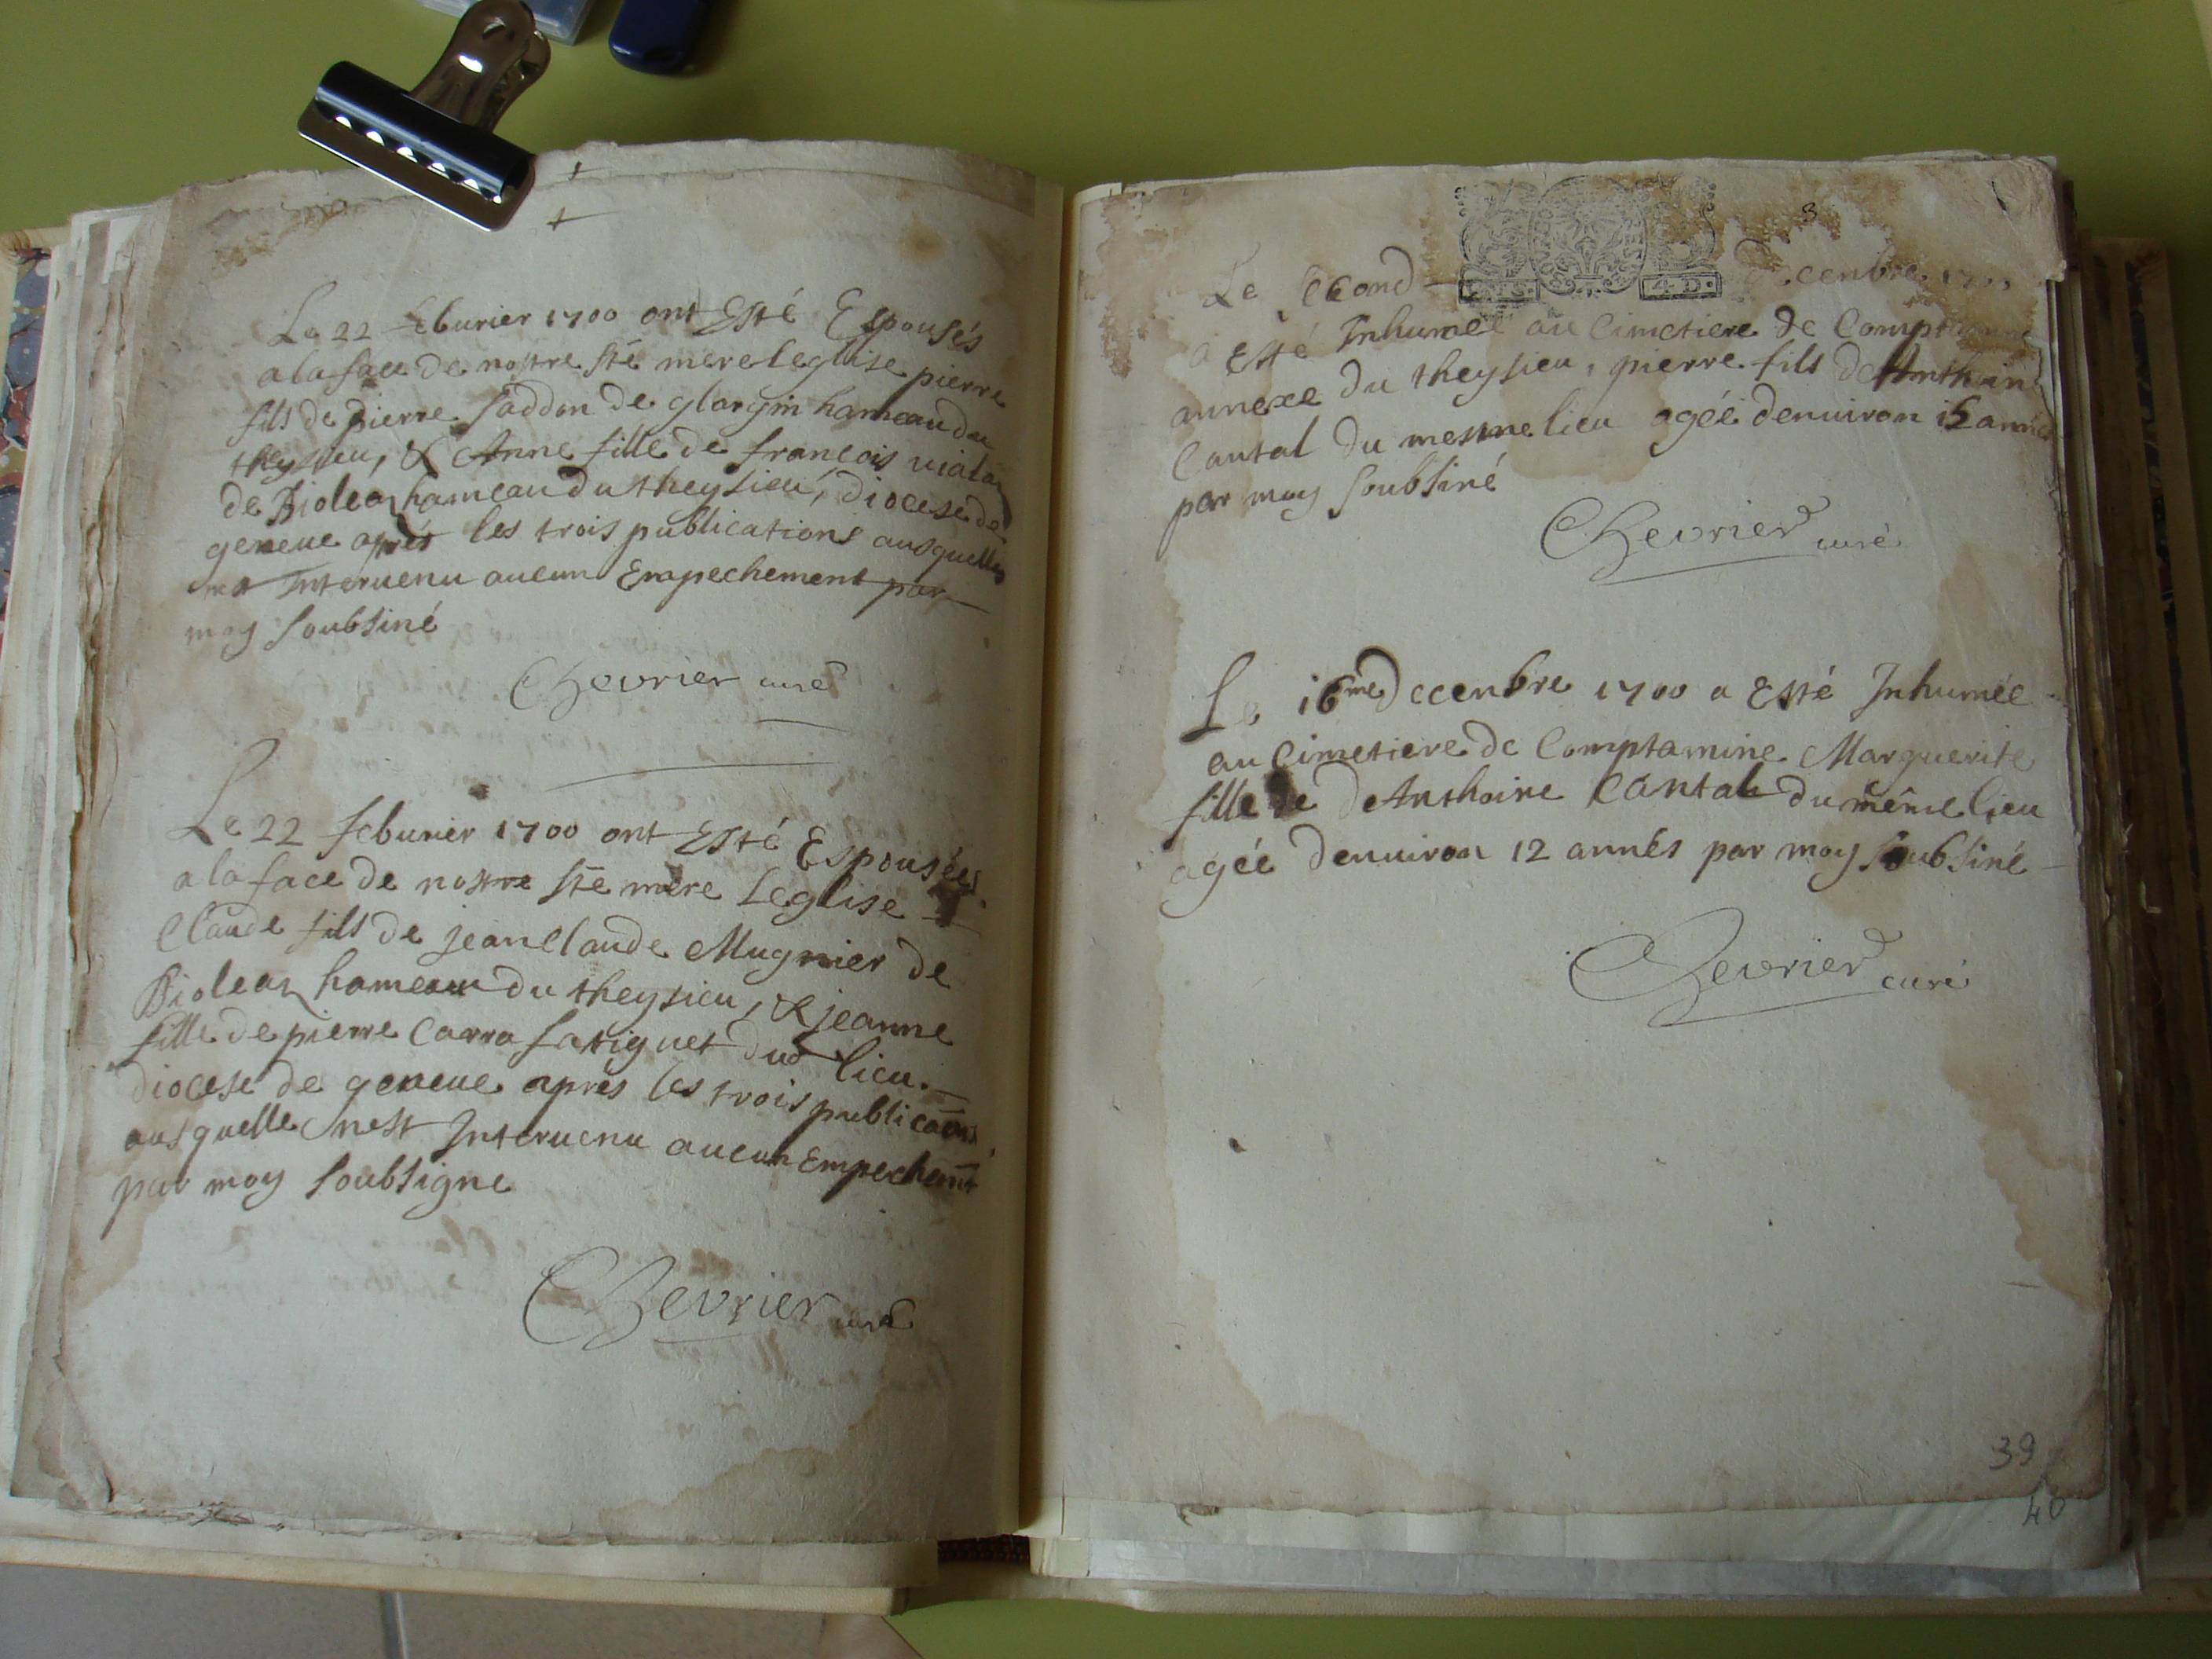 Le 22 feburier 1700 ont Esté Espousés
a la face de nostre ste mere leglise pierre
fils de pierre saddon de glargin hameau du
theysieu, & Anne fille de françois
de Bioleaz hameau du theysieu, diocese de
geneue aprés les trois publications ausquelles
Interuenu aucun Empechement par
moy soubsiné
Chevrier curé
Le 22 feburier 1700 ont Esté Espousées
a la face de nostre ste mere Leglise
Claude fils de jean Claude Mugnier de
Bioleaz hameau du theysieu, & jeanne
fille de pierre Carra fatignet dud lieu.
diocese de geneue aprés les trois publicãons
ausquelle nest Interuenu aucun Empechemt
par moy soubsigne
Chevrier curé
3
Le second decenbre
a Esté Inhumée au Cimetiere de
annexe du theysieu, pierre fils de Anthoine
Cantal du mesme lieu agée denuiron 15 années
par moy soubsiné
Chevrier curé
4 D.
Le 16me Decenbre 1700 a Esté Inhumée
au Cimetiere de Comptamine Marguerite
fille de deAnthoine Cantal du même lieu
agée denuiron 12 annés par moy soubsiné
Chevrier curé
39
40